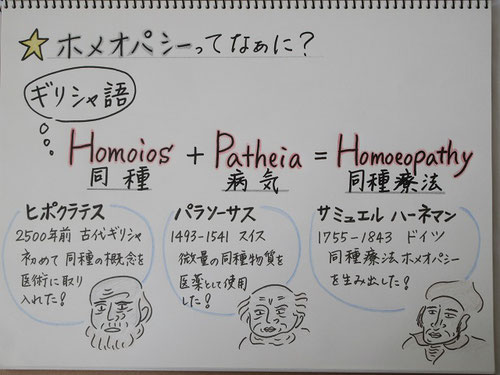 ホメオパシーってなぁに?
ギリシャ語
Homoios + Patheia = Homoeopathy
同種 病気 同種療法
ヒポクラテス
2500年前 古代ギリシャ
初めて 同種の概念を
医術に取り
入れた!
パラソーサス
1493-1541 スイス
微量の同種物質を
医薬として使用
した!
サミュエル ハーネマン
1755-1843 ドイツ
同種療法 ホメオパシー
を生み出した!